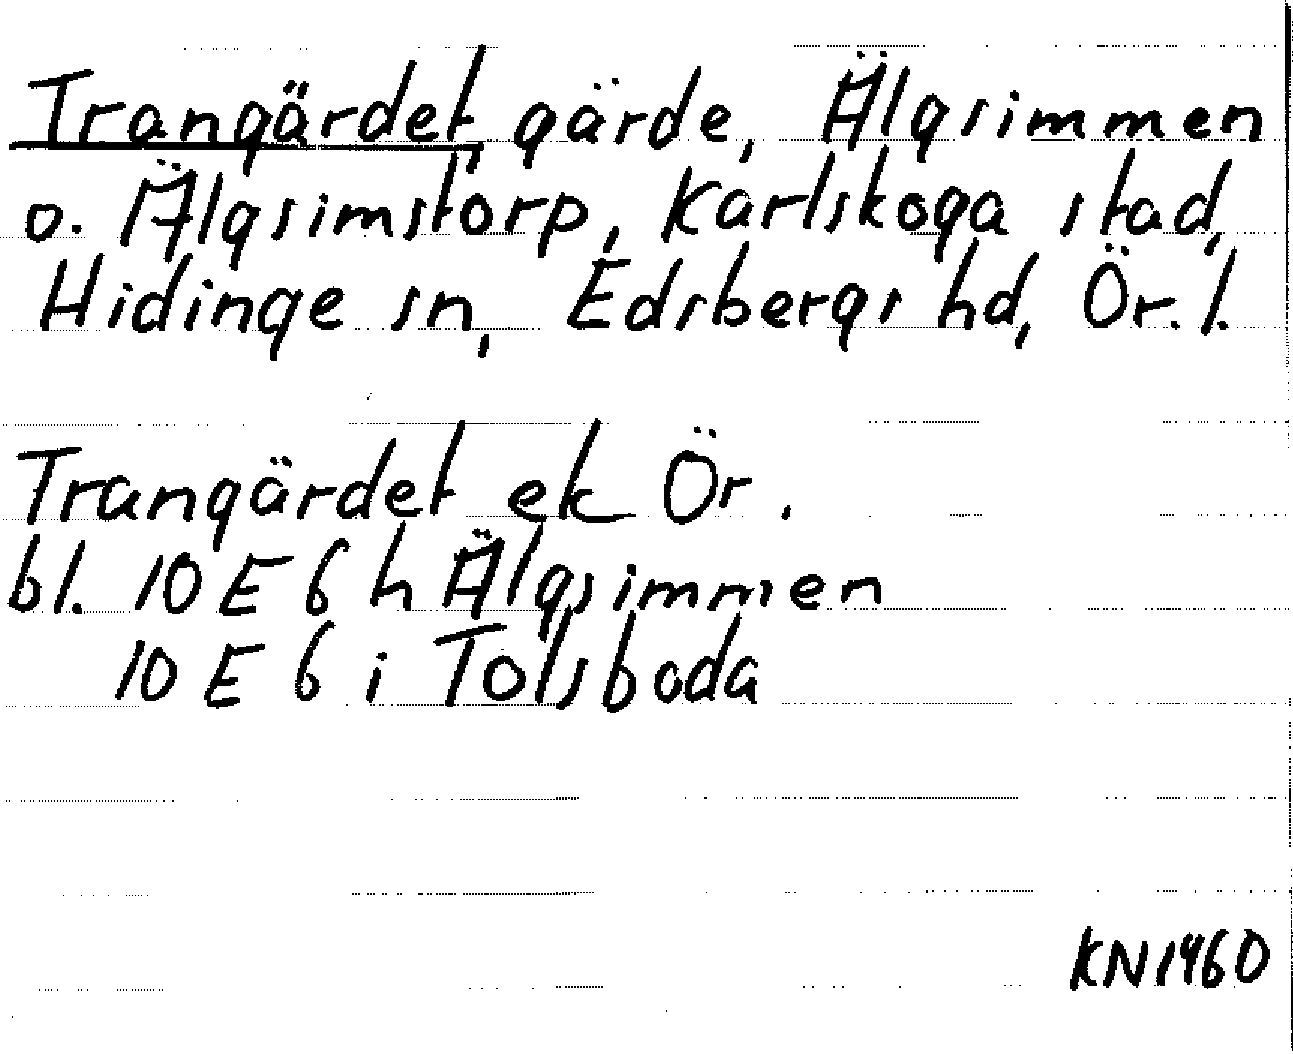 Trangärdet, gärde, Älgsimmen
o. Älgsimstorp, Karlskoga stad,
Hidinge sn, Edsbergs hd, Ör. l.
Trangärdet ek Ör.
bl. 10 E 6 h Älgsimmen
10 E 6 i Tolsboda
KN1960